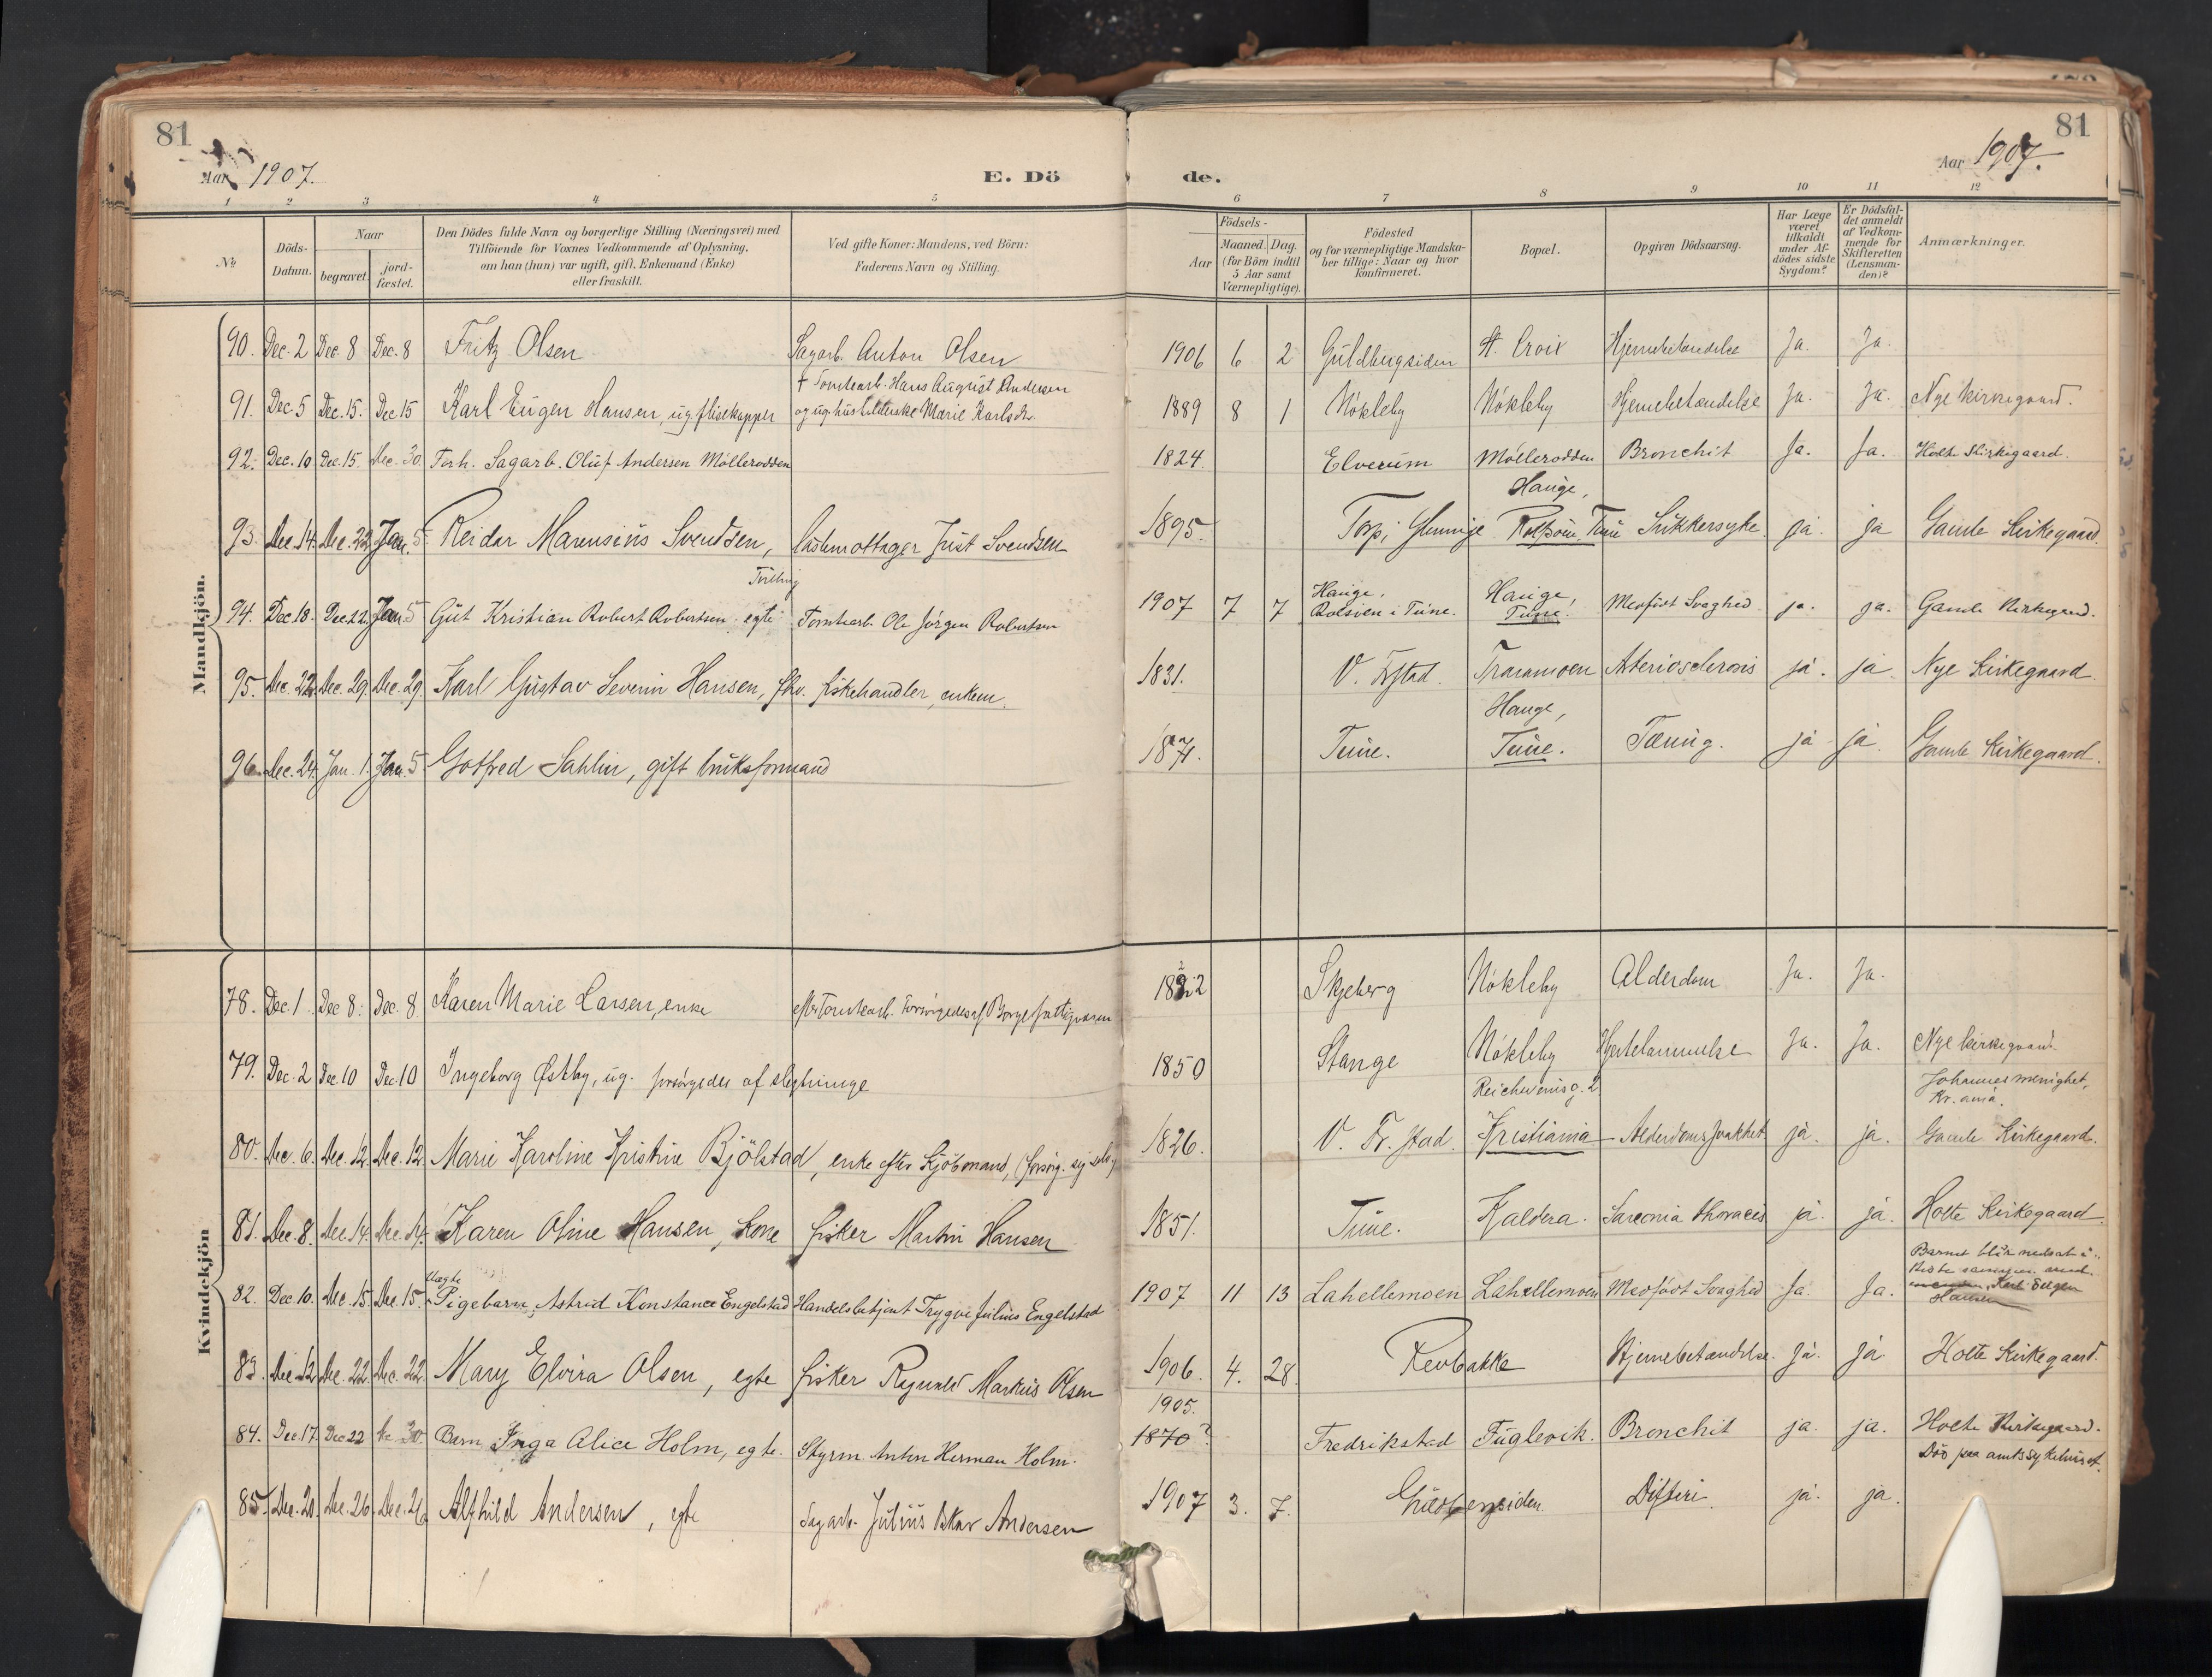 81
81
Aar 1907.
E. Dö
de.
Aar 1907.
1 2 3 4 5 6 7 8 9 10 11 12
No
Döds-Datum.
Naar
begravet.
jord-fæstet.
Den Dödes fulde Navn og borgerlige Stilling (Næringsvei) med
Tilföiende for Voxnes Vedkommende af Oplysning,
om han (hun) var ugift, gift, Enkemand (Enke)
eller fraskilt.
Ved gifte Koner: Mandens, ved Börn:
Faderens Navn og Stilling.
Födsels-
Aar
Maaned. Dag.
(for Börn indtil
5 Aar samt
Værnepligtige).
Födested
og for værnepligtige Mandska-
ber tillige: Naar og hvor
konfirmeret.
Bopæl.
Opgiven Dödsaarsag.
Har Læge
været
tilkaldt
under Af-
dödes sidste
Sygdom?
Er Dödsfal-
det anmeldt
af Vedkom-
mende for
Skifteretten
(Lensman-
den)?
Anmærkninger.
Mandkjön.
90. Dec. 2 Dec. 8 Dec. 8 Fritz Olsen Sagarb. Anton Olsen 1906 6 2 Guldbergsiden St. Croix Hjernebetændelse Ja. Ja.
† Tomtearb. Hans August Andersen
91. Dec. 5 Dec. 15. Dec 15 Karl Eugen Hansen, ug. flisekapper og ug. husholderske Marie Karlsdr 1889 8 1 Nökleby Nökleby Hjernebetændelse Ja. Ja. Nye kirkegaard.
92. Dec. 10 Dec. 15. Dec. 30. Forh. Sagarb. Oluf Andersen Möllerodden 1824 Elverum Möllerodden Bronchit Ja. Ja. Holte Kirkegaard.
Hauge,
93. Dec. 14. Dec. 22. Jan. 5. Reidar Marensius Svendsen, lastemottager Just Svendsen 1895. Torp i Glemminge Rolfsöen Tune Sukkersyke ja. ja Gamle Kirkegaard.
Tvilling Hauge, Hauge,
94. Dec. 18. Dec. 22. Jan. 5 Gut Kristian Robert Robertsen, egte Tomtearb. Ole Jörgen Robertsen 1907 7 7 Rolsöen i Tune. Tune. Medfödt Svaghed ja. ja. Gamle Kirkegaard.
95. Dec. 22. Dec. 29. Dec. 29. Karl Gustav Severin Hansen, fhv. fiskehandler, enkem. 1831. V. Fr.stad. Traramoen Arteriosclerosis ja. ja Nye Kirkegaard.
Hauge,
96. Dec. 24. Jan. 1. Jan. 5. Gotfred Sahlin, gift bruksformand 1871. Tune. Tune. Tæring. ja ja. Gamle Kirkegaard.
Kvindekjön
78. Dec. 1. Dec 8. Dec. 8 Karen Marie Larsen, enke efter Tomtearb. Forsörgedes af Borge fattigvæsen 1822 Skjeberg Nökleby Alderdom Ja. Ja.
79. Dec. 2 Dec. 10 Dec. 10 Ingeborg Østby, ug. forsörgedes af slegtninge 1850 Stange Nökleby Hjertelammelse Ja. Ja. Nye kirkegaard.
Reichweinsg. 2. Johannes menighet, Kr.ania.
80. Dec. 6. Dec. 12. Dec. 12. Marie Karoline Kristine Bjölstad, enke efter Kjöbmand, (forsörg. sig selv) 1826. V. Fr. stad. Kristiania Alderdomssvakhet ja. ja. Gamle Kirkegaard.
81. Dec. 8. Dec. 14. Dec. 14. Karen Oline Hansen, kone fisker Martin Hansen 1851. Tune. Kaldera. thoracis ja. ja. Holte Kirkegaard.
Uægte Barnet blir nedsat i
82. Dec. 10. Dec. 15. Dec. 15. Pigebarn, Astrid Konstance Engelstad Handelsbetjent Trygve Julius Engelstad 1907 11 13 Lahellemoen Lahellemoen Medfödt Svaghed Ja. Ja. kiste sammen med Karl Eugen Hansen
83. Dec. 12. Dec. 22. Dec. 22. Mary Elvira Olsen, egte fisker Ragnvald Markus Olsen 1906. 4. 28. Revbakke Hjernebetændelse. ja. ja. Holte Kirkegaard.
1905.
84. Dec. 17. Dec 22 Dec 30. Barn Inga Alice Holm, egte. Styrm. Anton Herman Holm. 1870? Fredrikstad Fuglevik. Bronchit ja. ja. Holte Kirkegaard.
Död paa amtssykehuset.
85. Dec. 20. Dec. 26. Dec. 26. Alfhild Andersen, egte Sagarb. Julius Oskar Andersen 1907 3. 7. Guldbergsiden. Difteri. ja. ja.